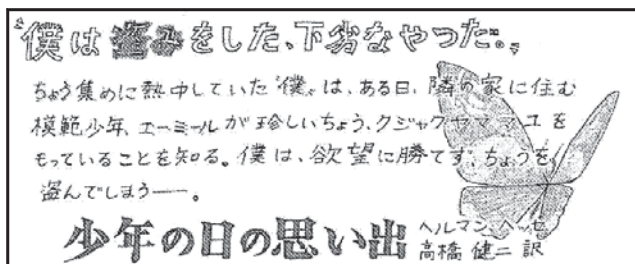 “僕は盗みをした、下劣なやつだ。”
ちょう集めに熱中していた“僕”は、ある日、隣の家に住む
模範少年、エーミールが珍しいちょう、クジャクヤママユを
もっていることを知る。僕は、欲望に勝てず、ちょうを
盗んでしまう——。
少年の日の思い出 ヘルマン・ヘッセ
高橋健二 訳